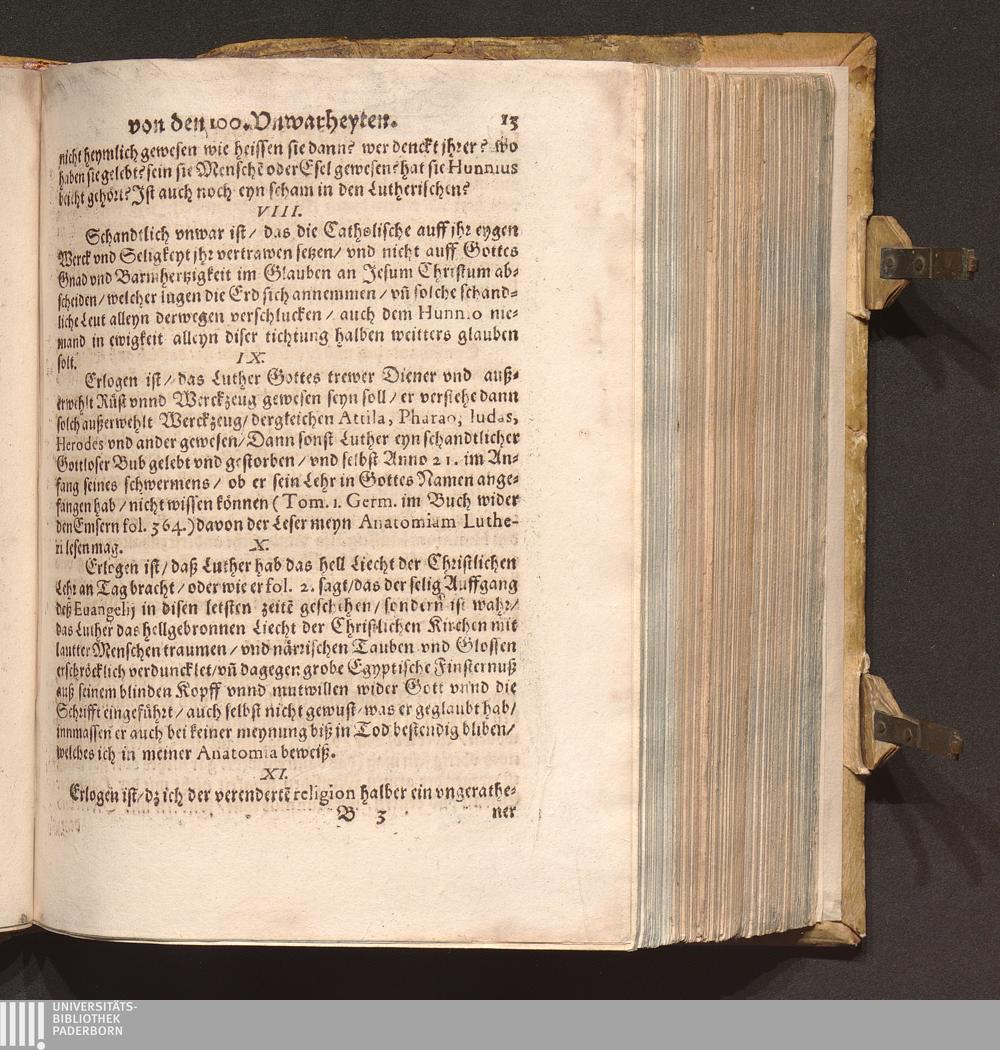 von den 100. Vnwarheyten. 13
nicht heymlich gewesen wie heissen sie dann? wer denckt jhrer? wo
haben sie gelebt? sein sie Menschē oder Esel gewesen? hat sie Hunnius
beicht gehört? Ist auch noch eyn scham in den Lutherischen?
VIII.
Schandtlich vnwar ist / das die Catholische auff jhr eygen
Werck vnd Seligkeyt jhr vertrawen setzen / vnd nicht auff Gottes
Gnad vnd Barmhertzigkeit im Glauben an Jesum Christum ab-
scheiden / welcher lugen die Erd sich annemmen / vñ solche schand-
liche Leut alleyn derwegen verschlucken / auch dem Hunnio nie-
mand in ewigkeit alleyn diser tichtung halben weitters glauben
solt.
IX.
Erlogen ist / das Luther Gottes trewer Diener vnd auß-
erwehlt Rüst vnnd Werckzeug gewesen seyn soll / er verstehe dann
solch außerwehlt Werckzeug / dergleichen Attila, Pharao, Iudas,
Herodes vnd ander gewesen / Dann sonst Luther eyn schandtlicher
Gottloser Bub gelebt vnd gestorben / vnd selbst Anno 21. im An-
fang seines schwermens / ob er sein Lehr in Gottes Namen ange-
fangen hab / nicht wissen können (Tom. 1. Germ. im Buch wider
den Emsern fol. 364.) davon der Leser meyn Anatomiam Luthe-
ri lesen mag.
X.
Erlogen ist / daß Luther hab das hell Liecht der Christlichen
Lehr an Tag bracht / oder wie er fol. 2. sagt / das der selig Auffgang
deß Euangelij in disen letsten zeitē geschehen / sondern ist wahr /
das Luther das hellgebronnen Liecht der Christlichen Kirchen mit
lautter Menschen traumen / vnd närrischen Tauben vnd Glossen
erschröcklich verduncklet / vñ dagegen grobe Egyptische Finsternuß
auß seinem blinden Kopff vnnd mutwillen wider Gott vnnd die
Schrifft eingeführt / auch selbst nicht gewust / was er geglaubt hab /
innmassen er auch bei keiner meynung biß in Tod bestendig bliben /
welches ich in meiner Anatomia beweiß.
XI.
Erlogen ist / dz ich der verendertē religion halber ein vngerathe-
B 3 ner
UNIVERSITÄTS-
BIBLIOTHEK
PADERBORN